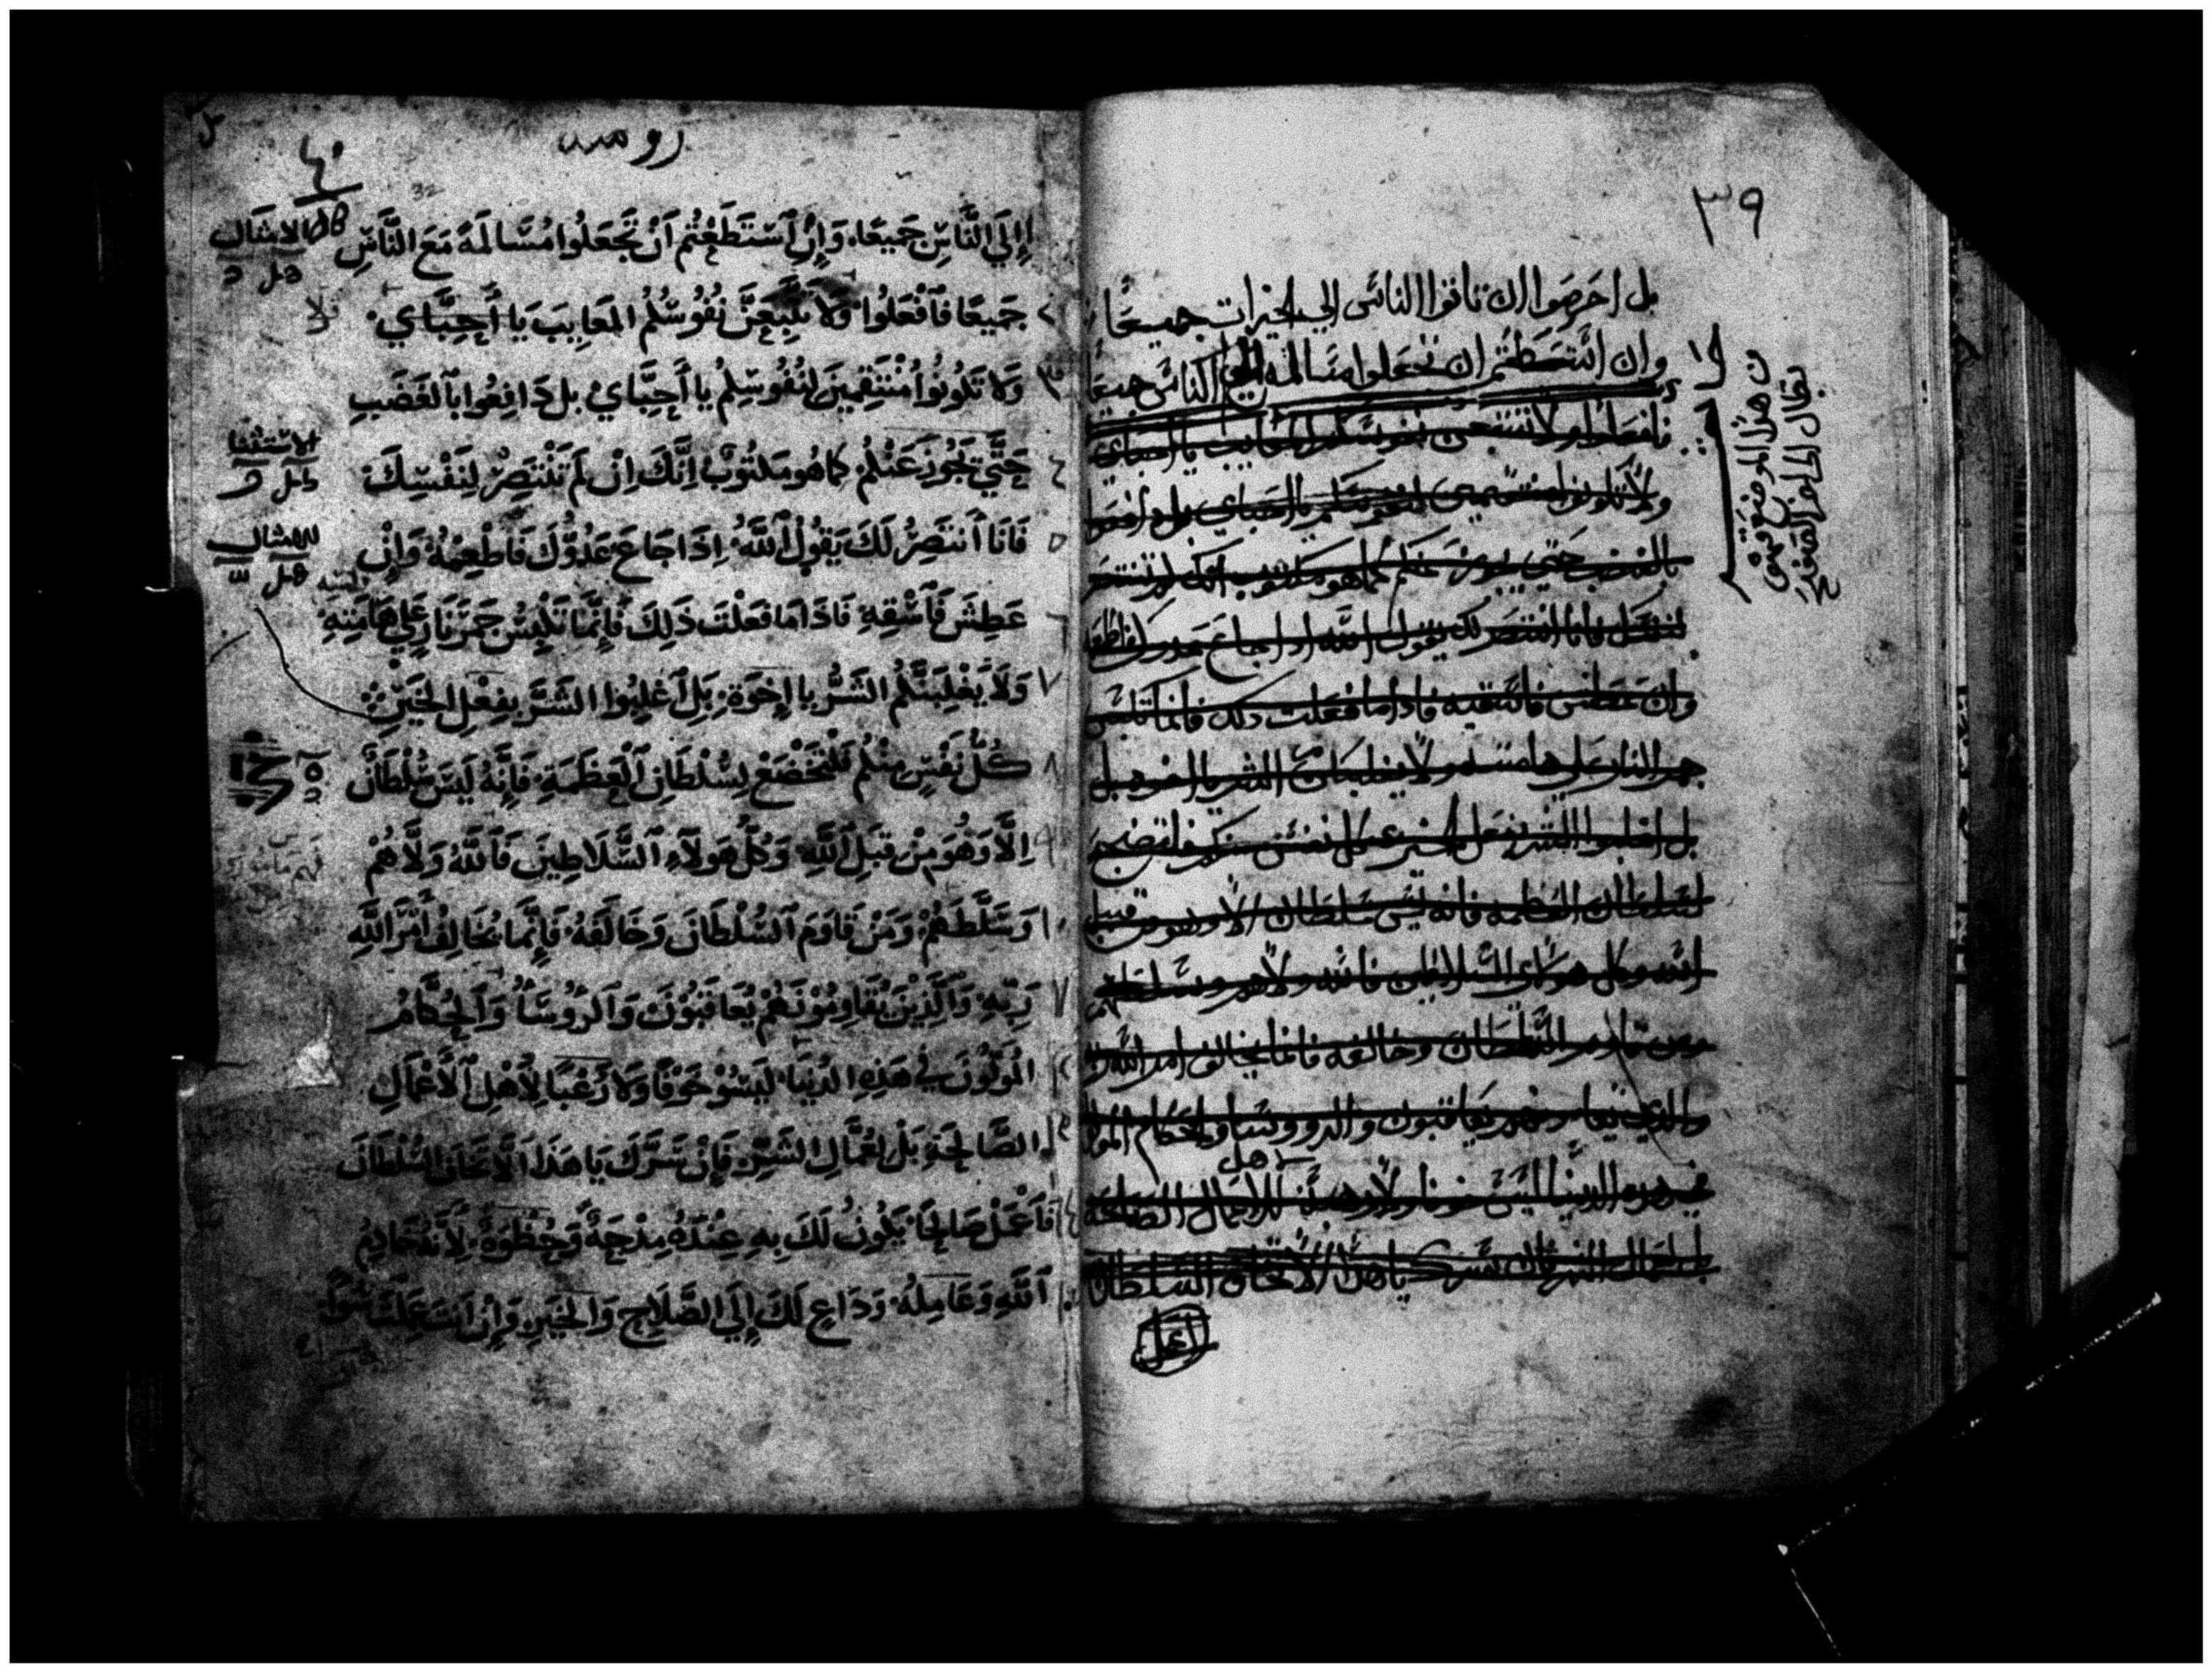 ٣٩
بل احرصوا ان تاتوا الناس الي الخيرات جميعا
وان استطعتم ان تجعلوا مسالمة الناس جميعا
فافعلوا ولا تتبعن نفوسكم المعايب يا احباي
ولا تكونوا منتقمين لنفوسكم يا احباي بل دافعوا
بالغضب حتي يجوز عنكم كما هو مكتوب انك لم تنتصر
لنفسك فانا انتصر لك يقول الله اذا جاع عدوك فاطعمه
وان عطش فاسقيه فاذا ما فعلت ذلك فانما تلبس
جمر النار علي هامته ولا يغلبنكم الشر يا اخوه بل
بل اغلبوا الشر بفعل الخير كل نفس منكم فلتخضع
لسلطان العظمه فانه ليس سلطان الا وهو من قبل
الله وكل هولاي السلاطين فالله ولاهم وسلطهم
ومن قاوم السلطان وخالفه فانما يخالف امر الله
والذين يقاومونهم يعاقبون والروسا والحكام
في هذه الدنيا ليس خوفا ولا رهبا للاعمال الصالحة
بل لعمال الشر فان سرك يا هذا الا تخاف السلطان
اعمل
بقي هذا الموضع
يقال
رومية
٤٠
32
إلَي النَّاسِ جَمِيعًا، وَإنِ ٱسْتَطَعْتُم أنْ تَجْعَلُوا مُسَالَمَةً مَعَ النَّاسِ
الامثال
جَمِيعًا فَٱفْعَلُوا وَلَا تَتْبَعَنَّ نُفُوسُكُمُ المَعَايِبَ يَا أحِبَّاي.
وَلَا تَكُونُوا مُنْتَقِمِينَ لِنُفُوسِكُم يا أحِبَّايَ بل دَافِعُوا بٱلغَضَبِ
الاستثنا
حَتَّي يَجُوزَ عَنْكُم كما هو مَكتُوبٌ إنَّكَ إنْ لَم تَنْتَصِرْ لِنَفْسِكَ
فَانَا أنتَصِرُ لَكَ يَقُولُ ٱللَّهُ إذَا جَاعَ عَدُوُّكَ فَاطْعِمْهُ وَإنْ
الامثال
عَطِشَ فَٱسْقِهِ فَاذَا مَا فَعَلْتَ ذَلِكَ فَإنَّمَا تَلْبِسُ جَمْرَ نَارٍ عَلَي هَامَتِهِ
وَلَا يَغْلِبَنَّكُم الشَرُّ يا إخوَة بَلِ ٱغلِبُوا الشَرَّ بفِعْلِ الخَيْرِ
كُلُّ نَفْسٍ مِنْكُم فَلْتَخْضَعْ لِسُلْطَانِ ٱلعَظَمَةِ فَإنَّهُ لَيسَ سُلْطَانٌ
إلَّا وَهُوَ مِنْ قِبَلِ ٱللَّهِ وَكُلُّ هَولآءِ ٱلسَّلَاطِينِ فَٱللَّهُ وَلَّاهُمْ
وَسَلَّطَهُمْ وَمَنْ قَاوَمَ ٱلسُّلْطَانَ وَخَالَفَهُ فَإنَّمَا يُخَالِفُ أمْرَ ٱللَّهِ
رَبِّهِ وَٱلَّذِينَ يُقَاوِمُونَهُمْ يُعَاقَبُونَ وَٱلرُّوسَآءُ وَٱلحُكَّامُ
المُوَلَّوْنَ في هَذِهِ الدُنْيَا لَيسُو خَوْفًا وَلَا رُعْبًا لِأهْلِ ٱلأعْمَالِ
الصَّالِحَةِ بَلْ لعُمَّالِ الشَرِّ فَإنْ سَرَّكَ يَا هَذَا ألَّا تَخَافَ السُلْطَانَ
فَٱعْمَلْ صَالِحًا يَكُونُ لَكَ بِهِ عِنْدَهُ مِدْحَةً وَحُظْوَةً لِأنَّهُ خَادِمُ
ٱللَّهِ وَعَامِلُهُ وَدَاعٍ لَكَ إلَي الصَّلَاحِ وَالخَيرِ وَإنْ أنتَ عَمِلتَ سُوًا